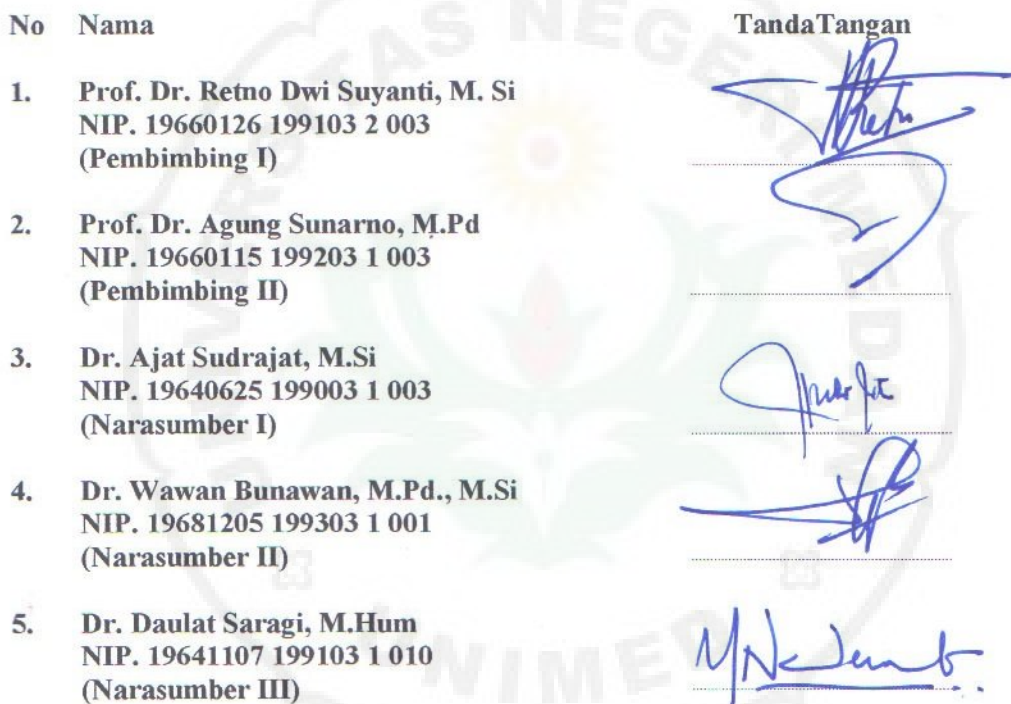 No Nama TandaTangan
1. Prof. Dr. Retno Dwi Suyanti, M. Si
NIP. 19660126 199103 2 003
(Pembimbing I)
2. Prof. Dr. Agung Sunarno, M.Pd
NIP. 19660115 199203 1 003
(Pembimbing II)
3. Dr. Ajat Sudrajat, M.Si
NIP. 19640625 199003 1 003
(Narasumber I)
4. Dr. Wawan Bunawan, M.Pd., M.Si
NIP. 19681205 199303 1 001
(Narasumber II)
5. Dr. Daulat Saragi, M.Hum
NIP. 19641107 199103 1 010
(Narasumber III)
UNIVERSITAS NEGERI MEDAN
UNIMED